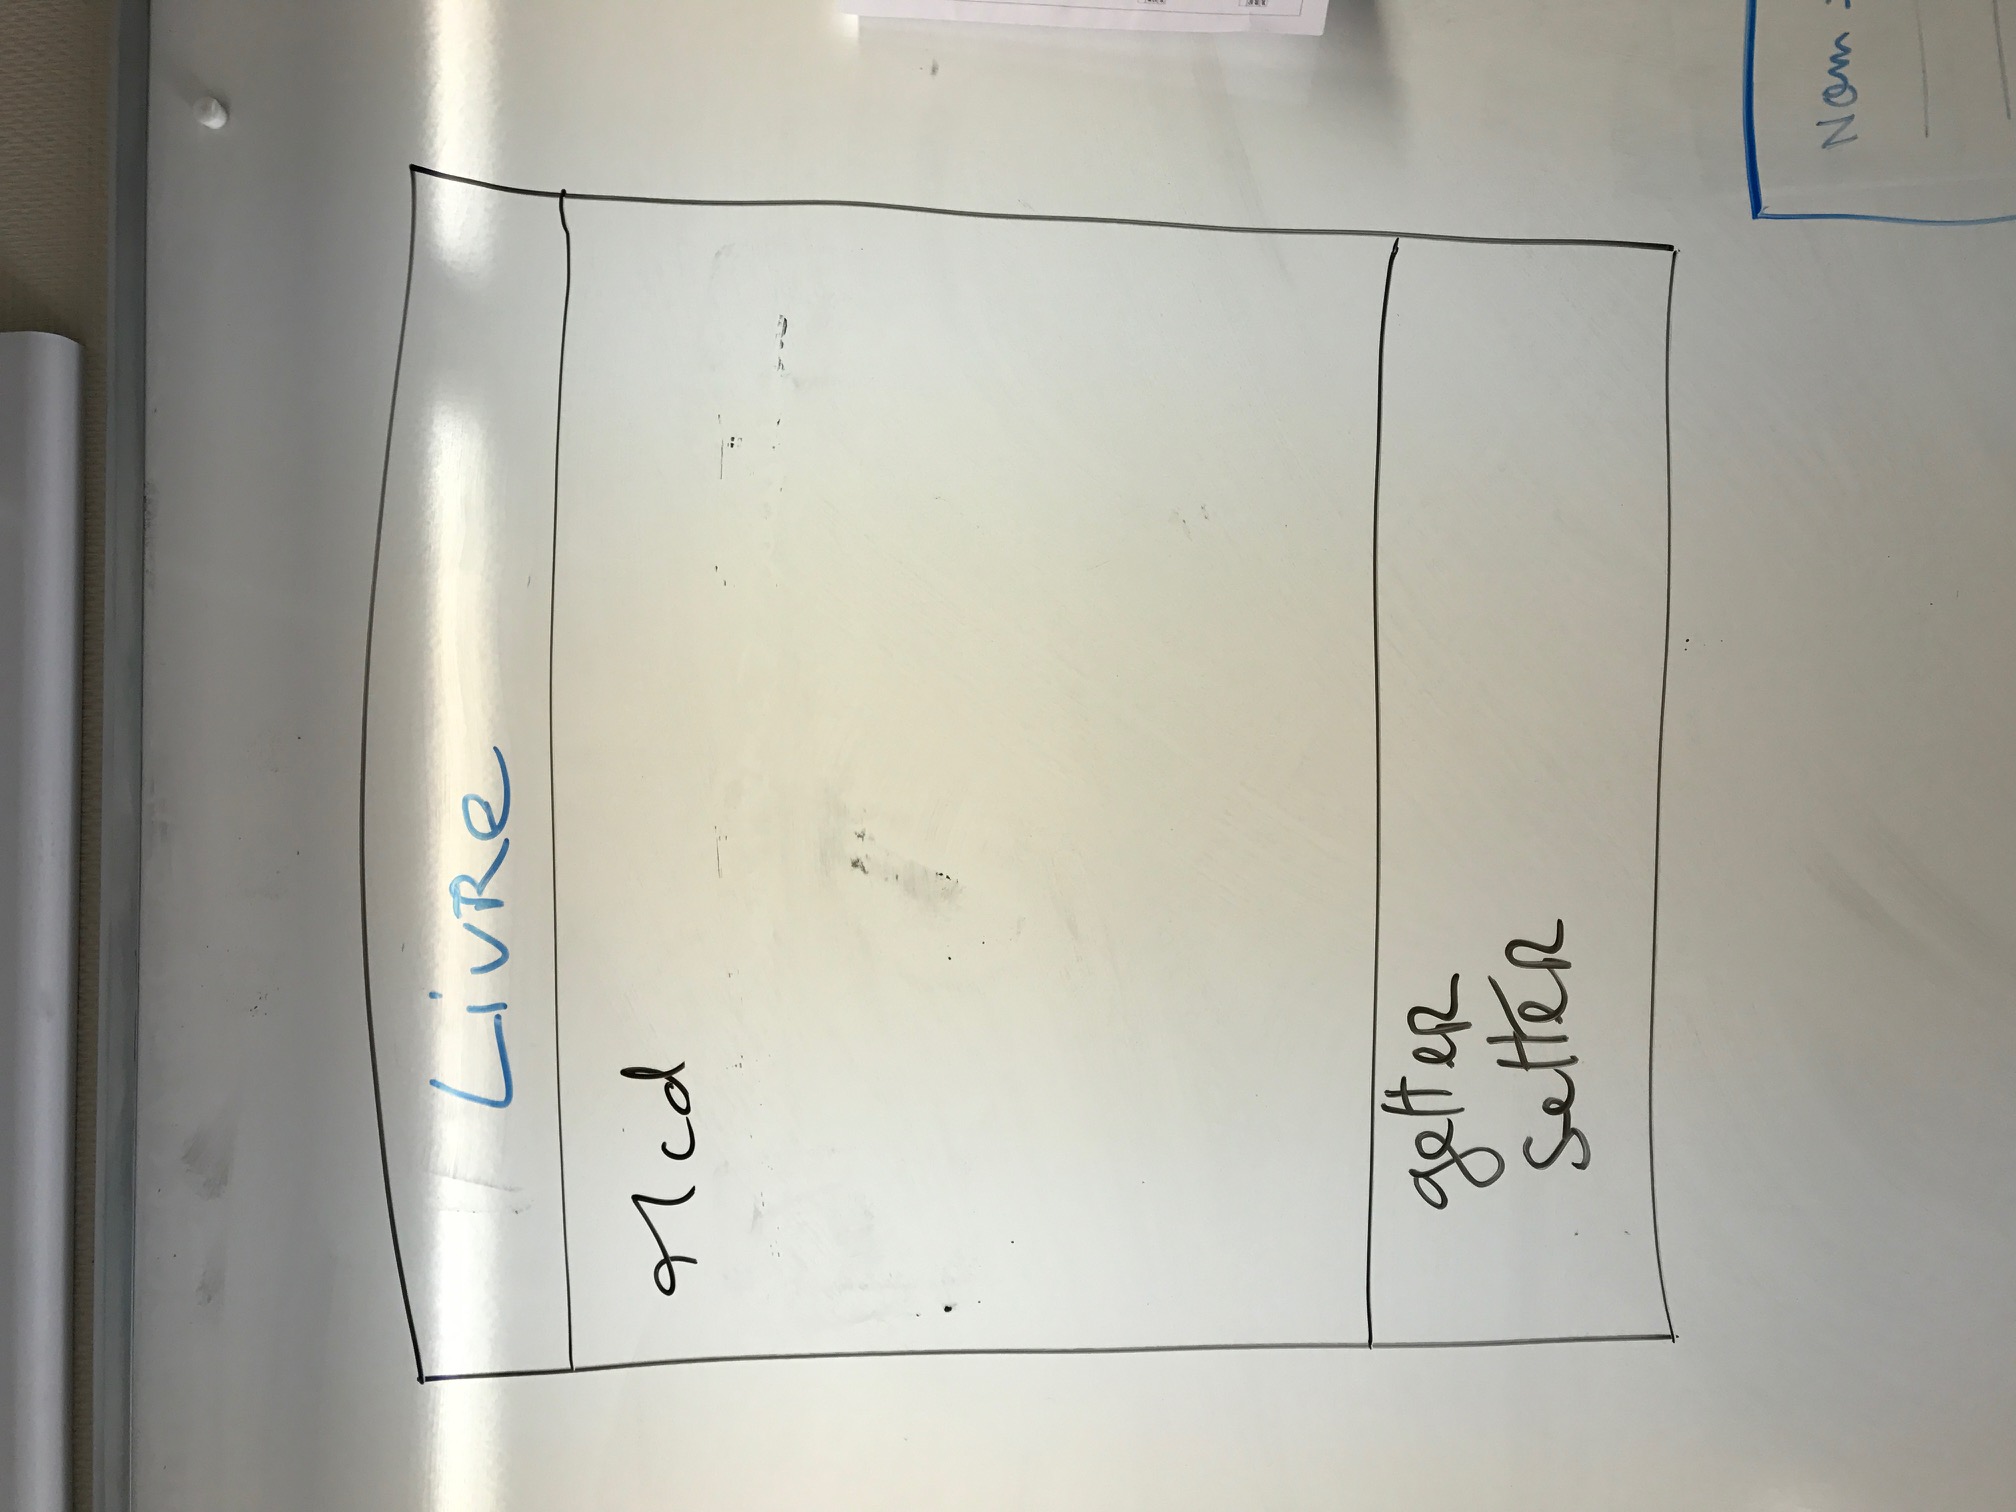 Livre
Mcd
getter
setter
Nom :